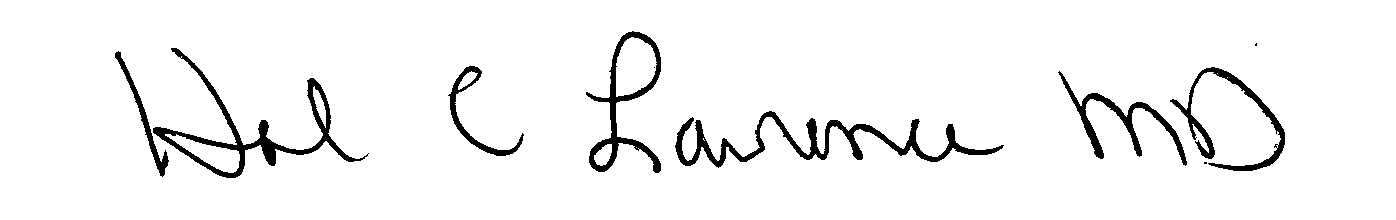 Hal C Lawrence MD